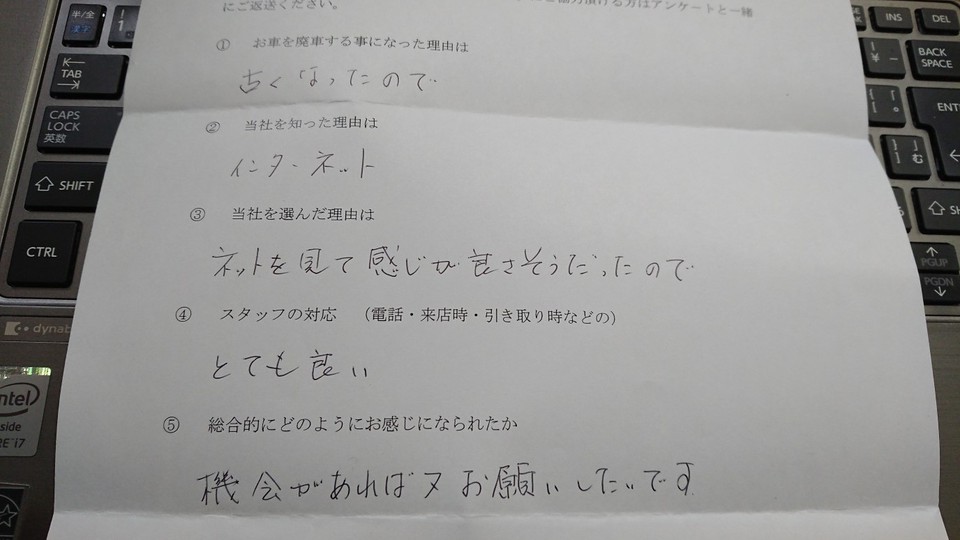 にご返送ください。
方はアンケートと一緒
① お車を廃車する事になった理由は
古くなったので
② 当社を知った理由は
インターネット
③ 当社を選んだ理由は
ネットを見て感じが良さそうだったので
④ スタッフの対応 （電話・来店時・引き取り時などの）
とても良い
⑤ 総合的にどのようにお感じになられたか
機会があれば又お願いしたいです
半/全
漢字
1
TAB
CAPS
LOCK
英数
SHIFT
CTRL
dynab
intel
side
RE i7
INS
DEL
BACK
SPACE
ENT
む
SH
PGUP
PGDN